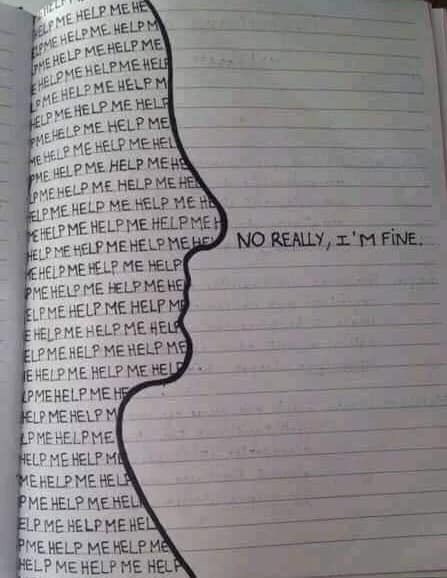 HELP ME HELP ME HE
ELP ME HELP ME HELP ME
PME HELP ME HELP ME
ME HELP ME HELP ME
E HELP ME HELP ME HELP
LP ME HELP ME HELP M
HELP ME HELP ME HELP
PME HELP ME HELP ME
ME HELP ME HELP ME HEL
ME HELP ME HELP ME HE
LP ME HELP ME HELP ME HEL
HELP ME HELP ME HELP ME HE
ME HELP ME HELP ME HELP ME H
HELP ME HELP ME HELP ME HEL NO REALLY, I'M FINE.
E HELP ME HELP ME HELP
PME HELP ME HELP ME HE
ELP ME HELP ME HELP ME
E HELP ME HELP ME HELP
ELP ME HELP ME HELP ME
E HELP ME HELP ME HELP
LP ME HELP ME HE
HELP ME HELP M
LP ME HELP ME
HELP ME HELP M
ME HELP ME HELP
PME HELP ME HELP
ELP ME HELP ME HEL
PME HELP ME HELP ME
HELP ME HELP ME HELP